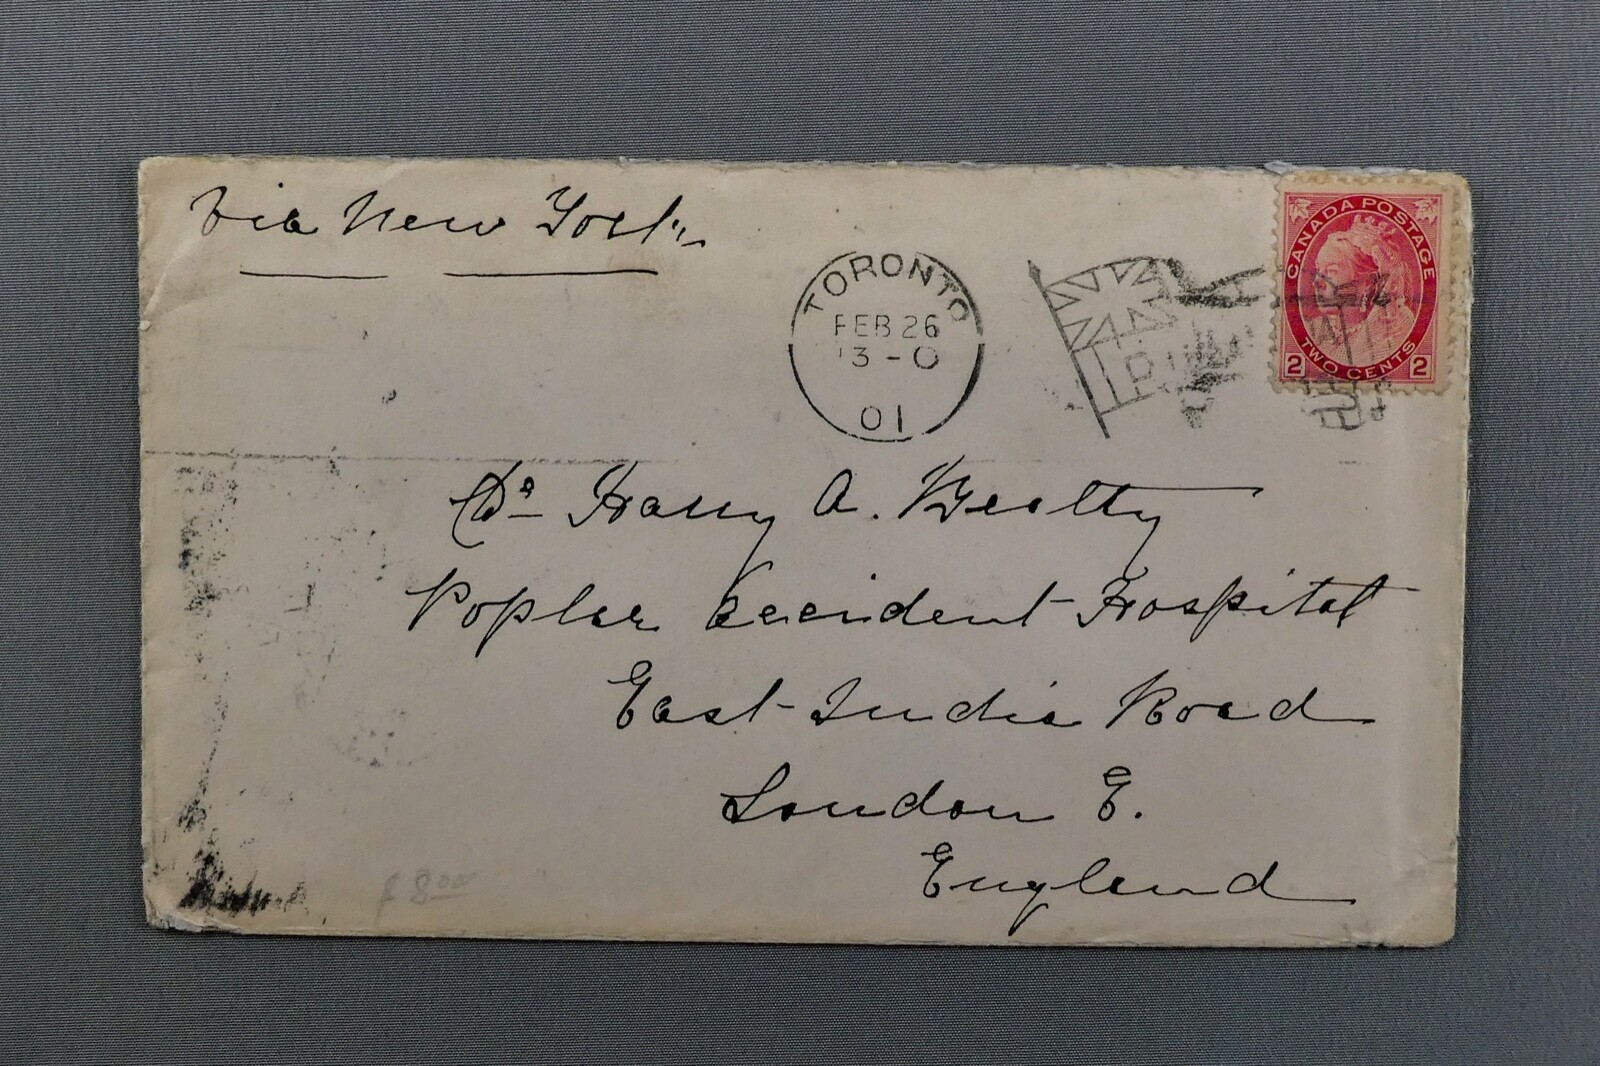 via New York
TORONTO
FEB 26
13-0
01
CANADA POSTAGE
TWO CENTS
2 2
Dr Harry A. Beatty
Poplar Accident Hospital
East India Road
London E.
England
800